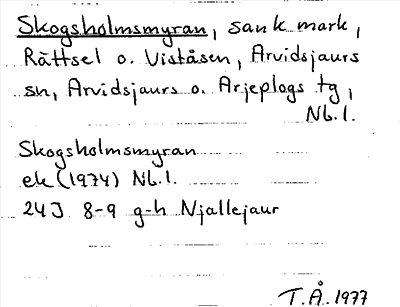 Skogsholmsmyran, sank mark,
Rättsel o. Viståsen, Arvidsjaurs
sn, Arvidsjaurs o. Arjeplogs tg,
Nb.l.
Skogsholmsmyran
ek (1974) Nb.l.
24J 8-9 g-h Njallejaur
T.Å. 1977